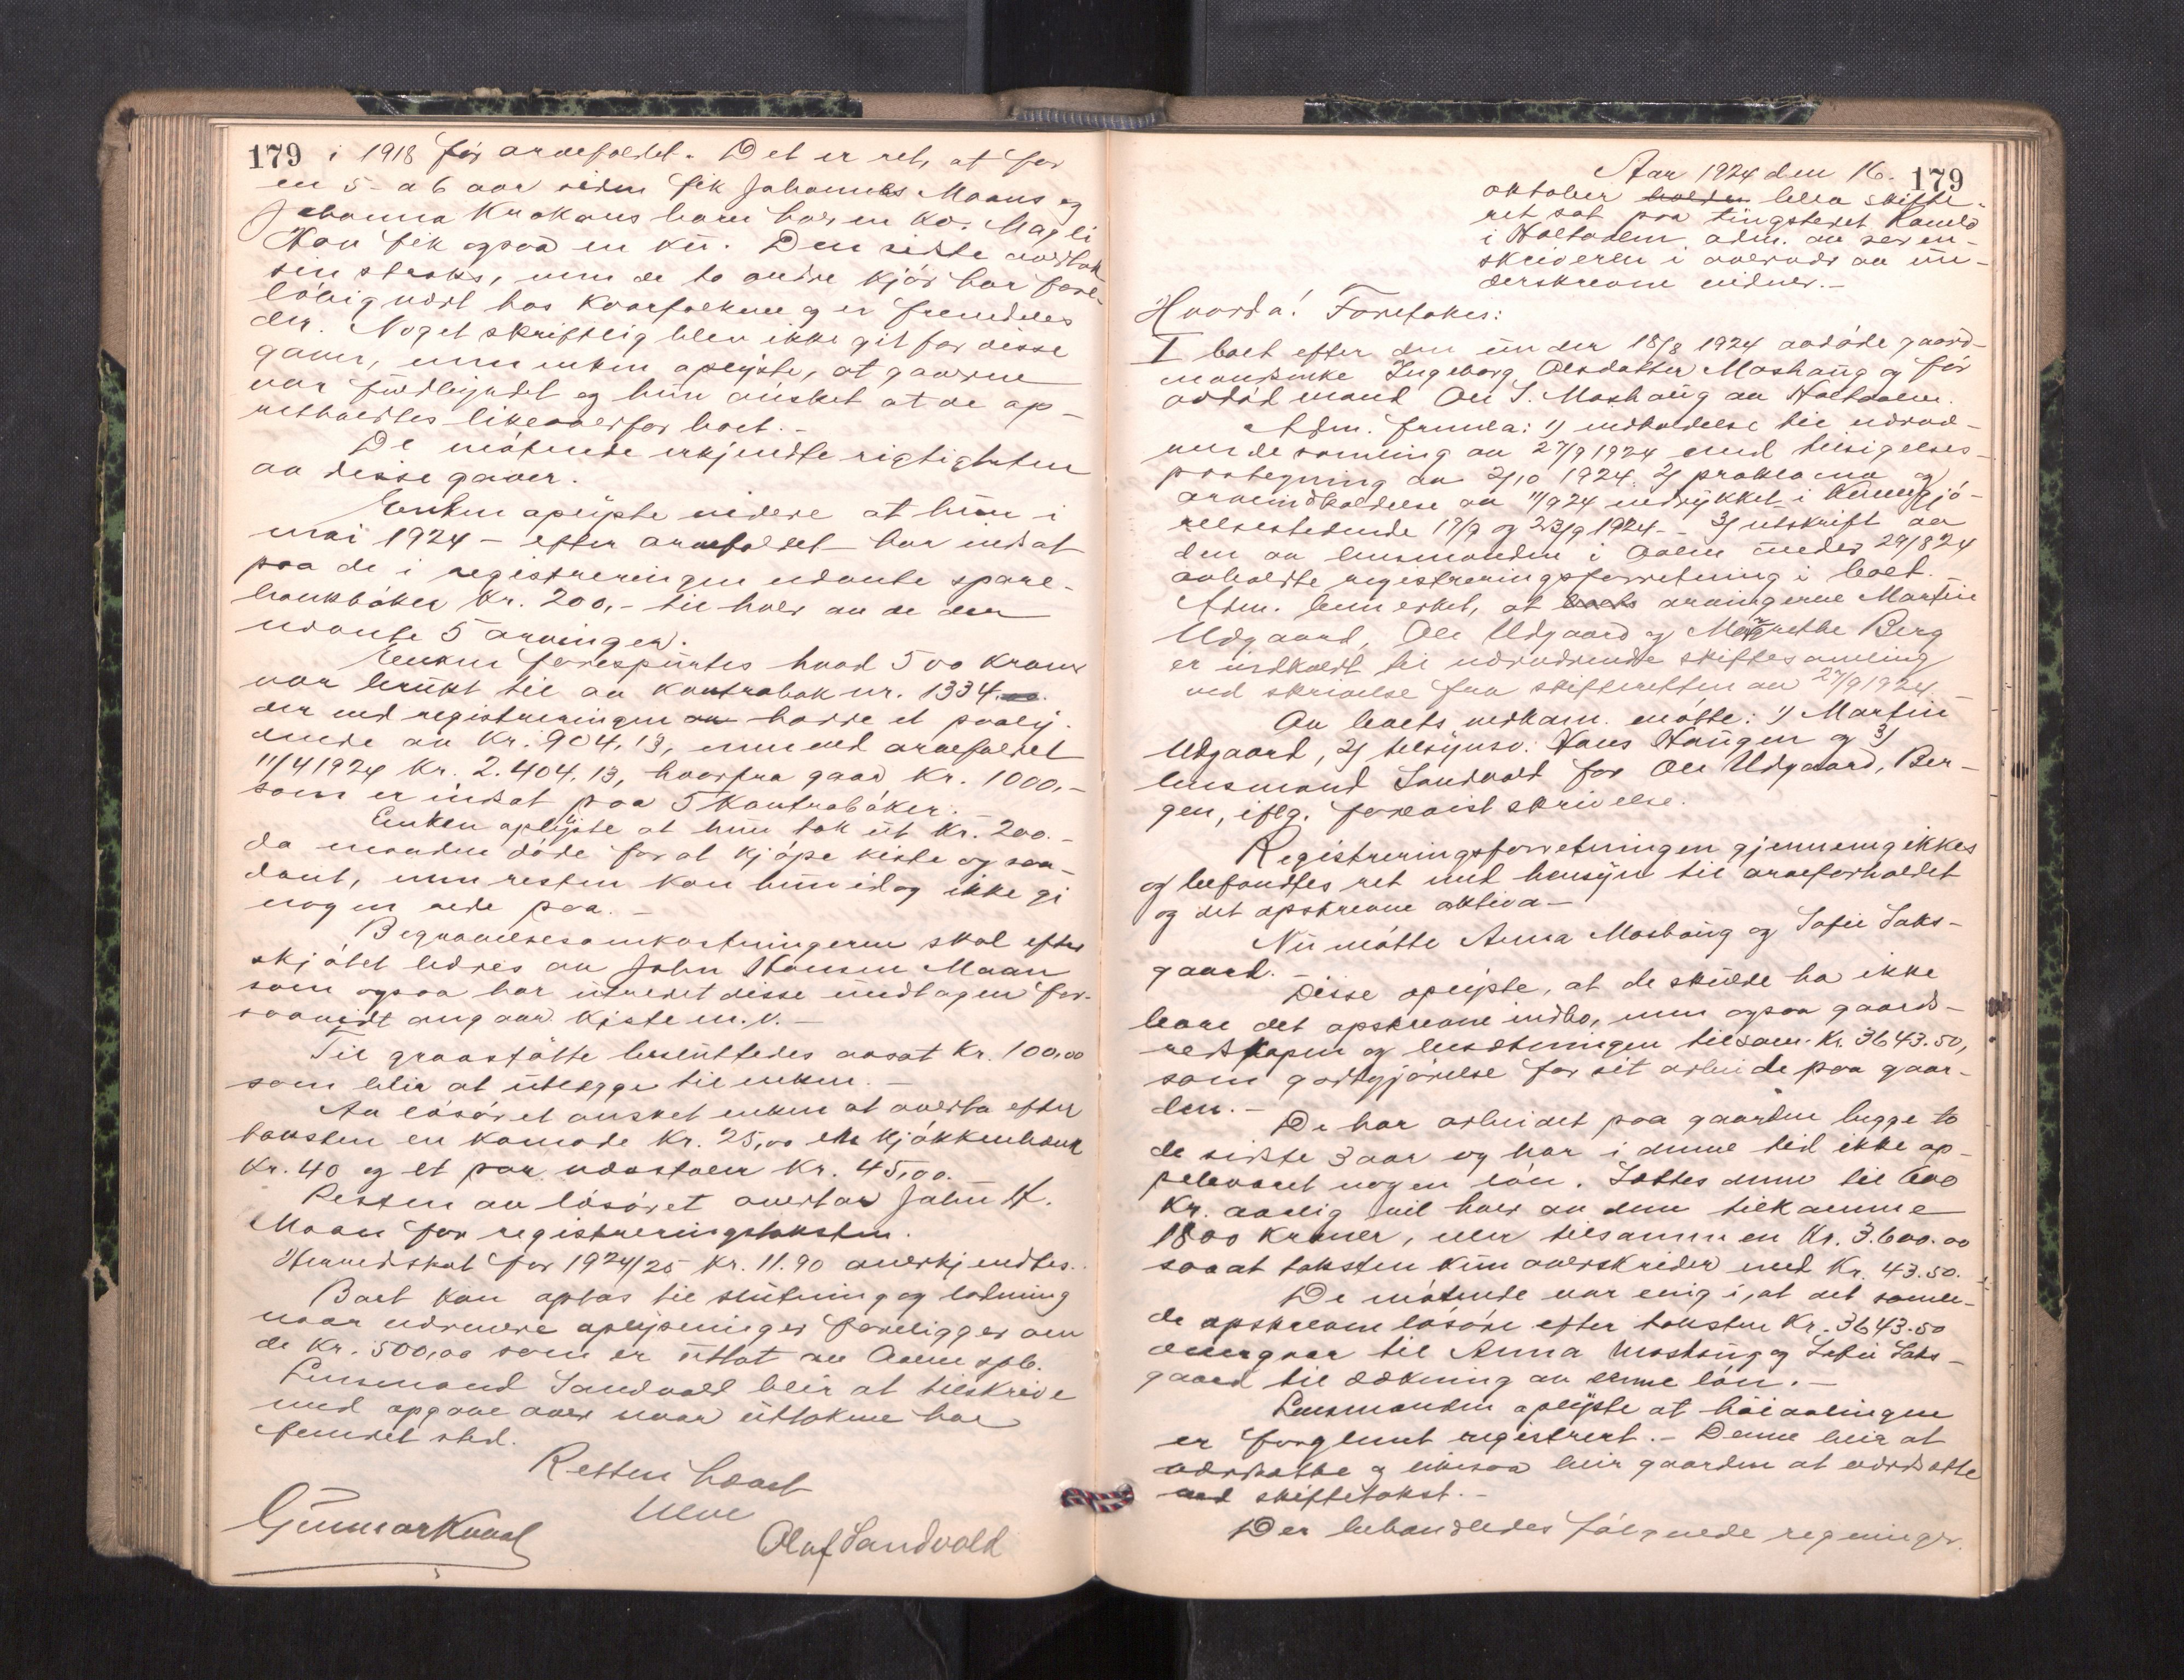 179 i 1918 før arvefaldet. Det er ret, at for
en 5 a 6 aar siden fik Johannes Maans og
Johanna Krokans barn hver en ko. Magli
Hau fik ogsaa en ku. Den siste mottok
sin straks, men de to andre kjør har fore-
løbig vært hos kaarfolkene og er fremdeles
der. Noget skriftlig blev ikke git for disse
gaver, men enken oplyste, at gaverne
var fuldbyrdet og hun ønsket at de op-
retholdtes likeoverfor boet.-
De møtende erkjendte rigtigheten
av disse gaver.
Enken oplyste videre at hun i
mai 1924 - efter arvefaldet - har indsat
paa de i registreringen nævnte spare-
bankbøker Kr. 200,- til hver av de der
nævnte 5 arvinger.
Enken forespurtes hvad 500 kroner
var brukt til av kontrabok nr. 1334.
der ved registreringen hadde et paaly-
dende av Kr. 904,13, men ved arvefaldet
11/4 1924 Kr. 2.404.13, hvorfra gaar Kr. 1000,-
som er indsat paa 5 kontrabøker.
Enken oplyste at hun tok ut Kr. 200.-
da manden døde for at kjøpe kiste og saa-
dant, men resten kan hun idag ikke gi
nogen rede paa.-
Begravelsesomkostningerne skal efter
skjøtet utredes av John Hansen Maan
som ogsaa har utredet disse undtagen for-
saavidt angaar kiste m.v.-
Til gravstøtte besluttedes avsat Kr. 100,00
som blir at utlegge til enken.-
Av løsøret ønsket enken at overta efter
taksten en komode Kr. 25,00 en kjøkkenbænk
Kr. 40 og et par vevstoler Kr. 45,00.-
Resten av løsøret overtar John H.
Maan for registreringstaksten.
Herredskat for 1924/25 Kr. 11.90 anerkjendtes.
Boet kan optas til slutning og lodning
naar nærmere oplysninger foreligger om
de Kr. 500,00 som er uttat av Aalen spb.
Lensmand Sandvold blir at tilskrive
med opgave over naar uttakene har
fundet sted.
Retten hævet
Gunnar Kvaal
Olaf Sandvold
179
Aar 1924 den 16.
oktober holdes blev skifte-
ret sat paa tingstedet
i Holtaalen, adm. av soren-
skriveren i overvær av un-
derskrevne vidner.-
Hvorda! Foretokes:
I boet efter den under 18/8 1924 avdøde gaard-
mandsenke Ingeborg Olsdatter Moshaug og før
avdød mand Ole S. Moshaug av Holtaalen.
Adm. fremla: 1) indkaldelse til nærvæ-
rende samling av 27/9 1924 med tilsigelses-
paategning av 2/10 1924. 2) proklama og
arveindkaldelse av 11/9 24 indrykket i Kundgjø-
relsestidende 17/9 og 23/9 1924.- 3) utskrift av
den av lensmanden i Aalen under 29/8 24
avholdte registreringsforretning i boet.-
Adm. bemerket, at boets arvingerne Martin
Udgaard, Ole Udgaard og Margrethe Berg
er indkaldt til nærværende skiftesamling
ved skrivelse fra skifteretten av 27/9 1924.-
Av boets vedkom. møtte: 1) Martin
Udgaard, 2) tilsynsv. Hans Haugen og 3)
lensmand Sandvold for Ole Udgaard, Ber-
gen, iflg. forevist skrivelse.
Registreringsforretningen gjennemgikkes
og befandtes ret med hensyn til arveforholdet
og det opskrevne aktiva.-
Nu møtte Anna Moshaug og Sofie Saks-
gaard.-
Disse oplyste, at de skulde ha ikke
bare det opskrevne indbo, men ogsaa gaards-
redskapen og besætningen tilsam. Kr. 3643.50,
som godtgjørelse for sit arbeide paa gaar-
den.-
De har arbeidet paa gaarden begge to
de sidste 3 aar og har i denne tid ikke op-
pebaaret nogen løn. Sættes denne til 600
Kr. aarlig vil hver av dem tilkomme
1800 kroner, eller tilsammen Kr. 3.600.00
saa at taksten kun overskrider med Kr. 43.50.
De møtende var enig i, at det samle-
de opskrevne løsøre efter taksten Kr. 3643.50
overgaar til Anna Moshaug og Sofie Saks-
gaard til dækning av denne løn.-
Lensmanden oplyste at høiavlingen
er forglemt registrert.- Denne blir at
værdsætte og likesaa blir gaarden at værdsætte
ved skiftetakst.-
Der behandledes følgende regninger.